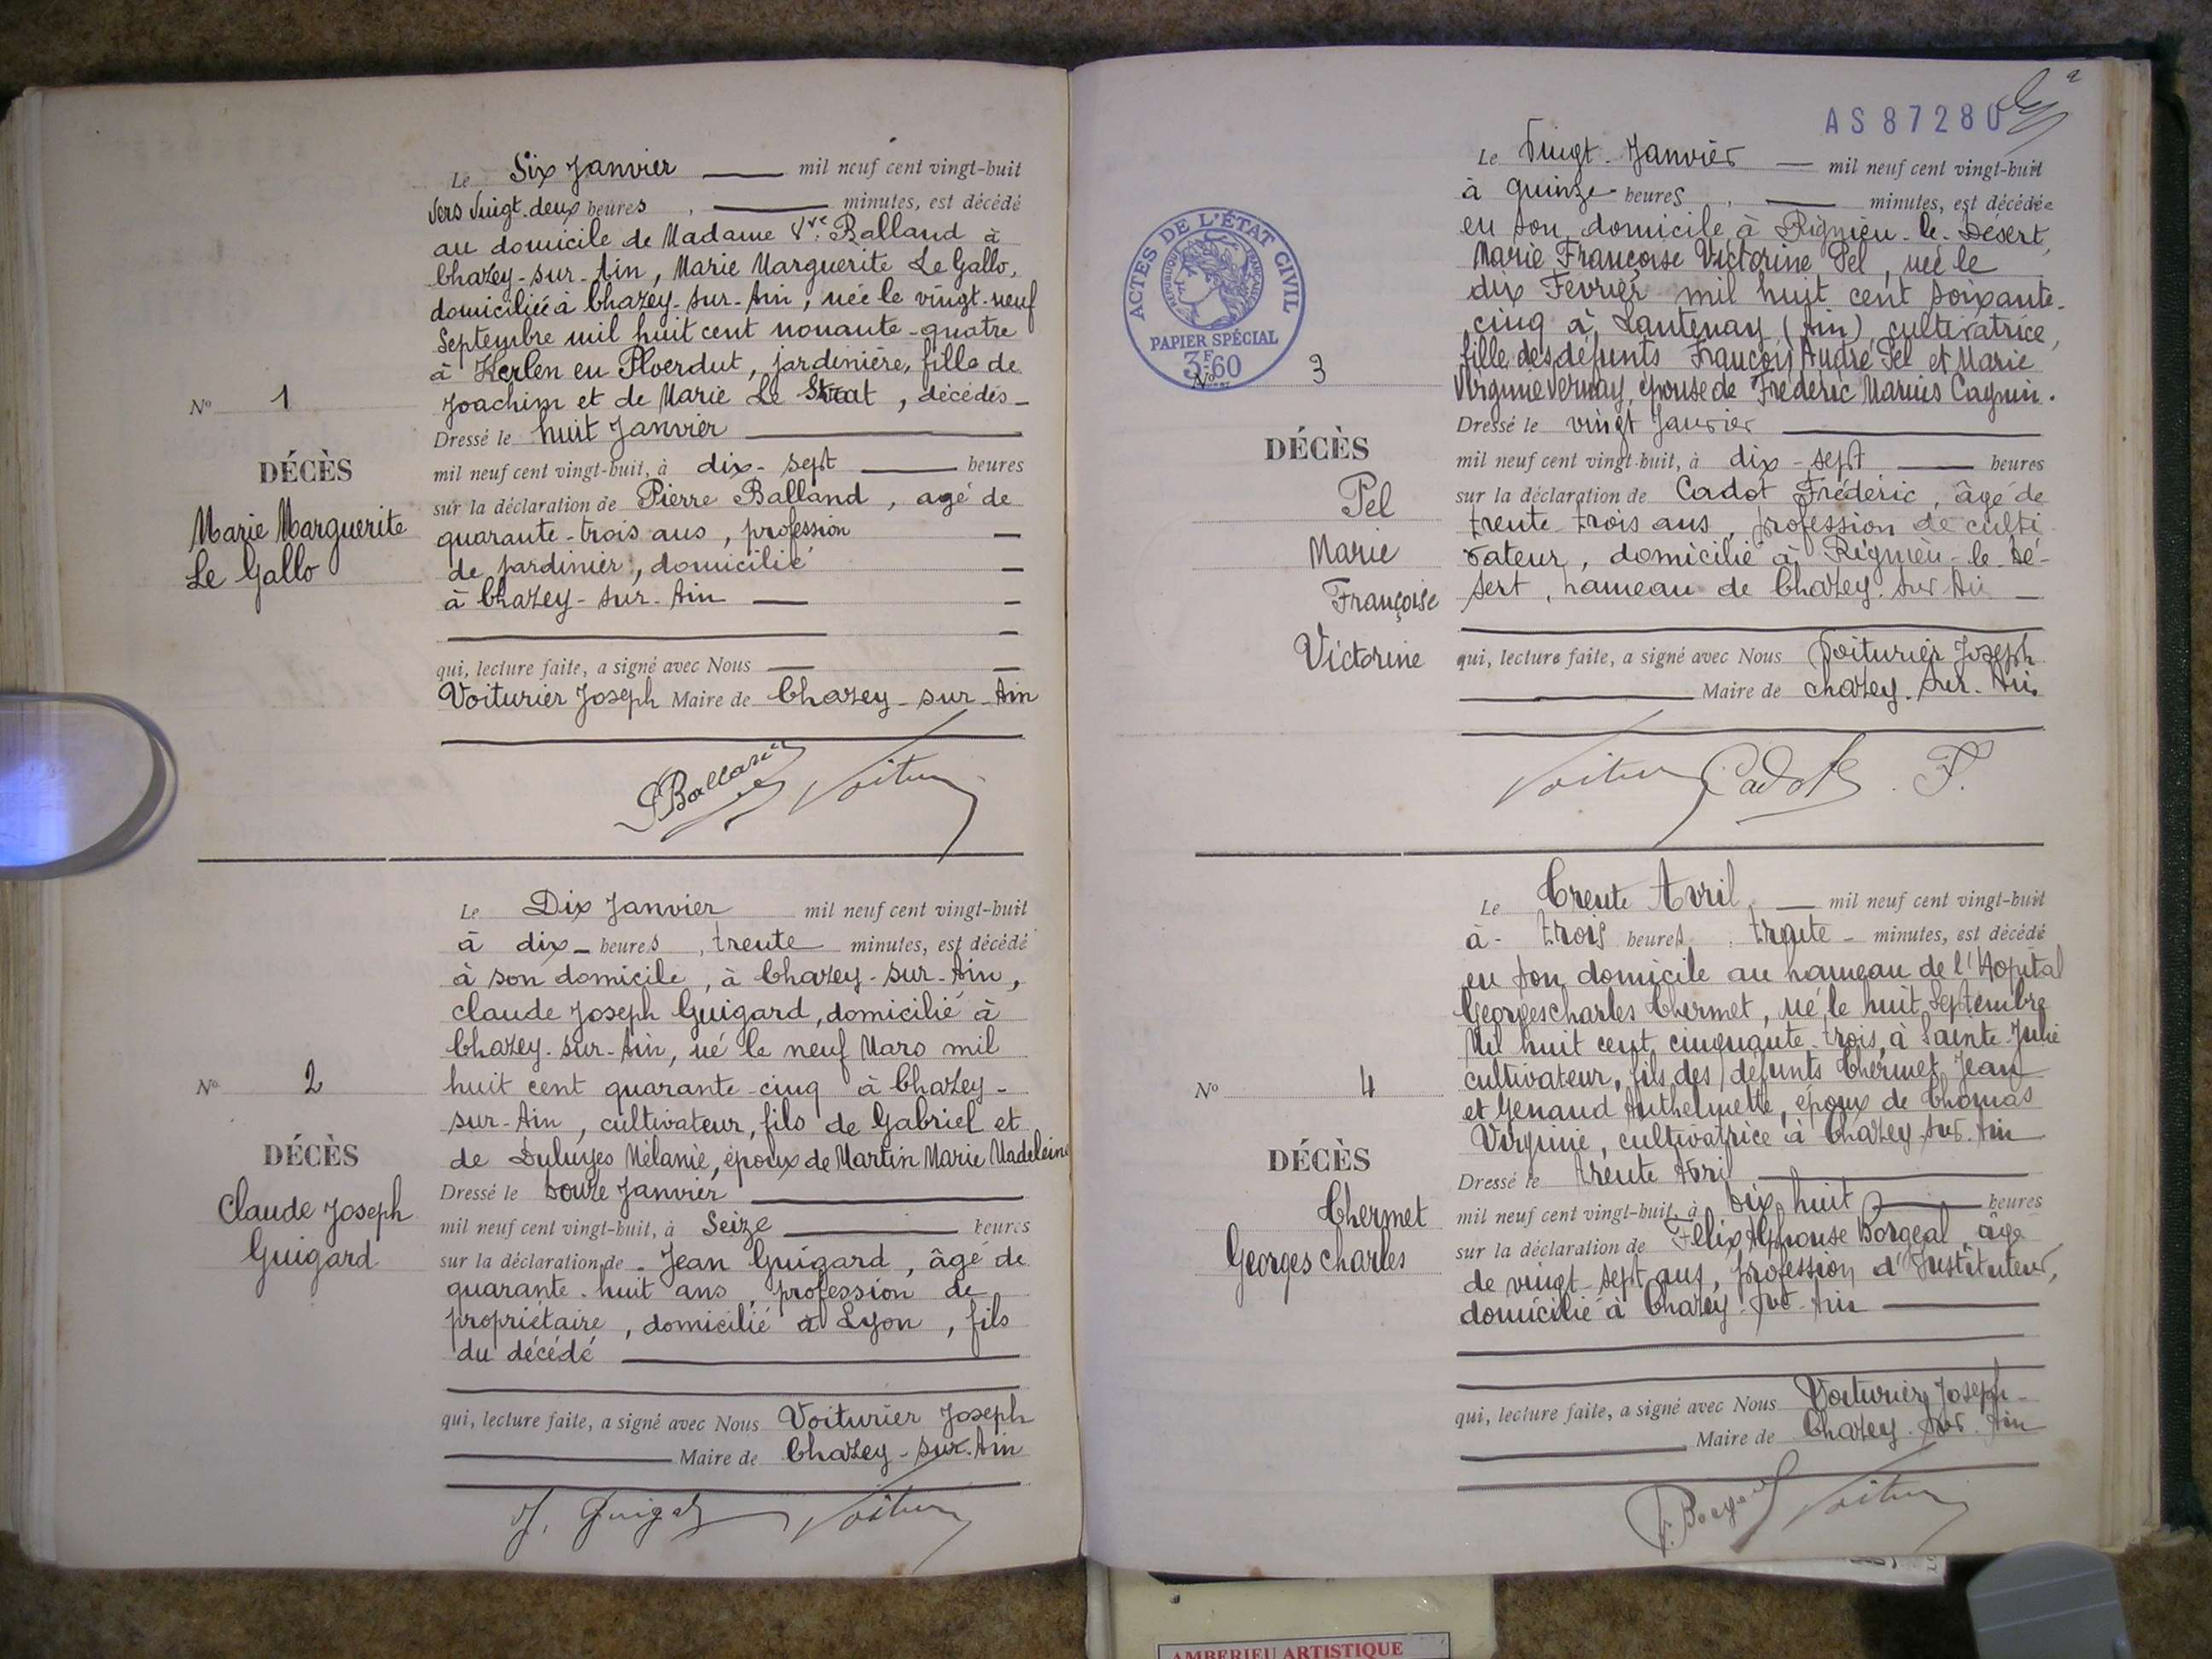 Le Six Janvier mil neuf cent vingt-huit
vers vingt-deux heures, minutes, est décédé
au domicile de Madame Vve Balland à
Chazey-sur-Ain, Marie Marguerite Le Gallo,
domiciliée à Chazey-sur-Ain, née le vingt-neuf
Septembre mil huit cent nonante-quatre
à Kerlen en Ploerdut, jardinière, fille de
Joachim et de Marie Le , décédés
N° 1
DÉCÈS
Marie Marguerite
Le Gallo
Dressé le huit Janvier
mil neuf cent vingt-huit, à dix-sept heures
sur la déclaration de Pierre Balland, agé de
quarante-trois ans, profession
de jardinier, domicilié
à Chazey-sur-Ain
qui, lecture faite, a signé avec Nous
Voiturier Joseph Maire de Chazey-sur-Ain
P Balland Voiturier
Le Dix Janvier mil neuf cent vingt-huit
à dix heures, trente minutes, est décédé
à son domicile, à Chazey-sur-Ain,
Claude Joseph Guigard, domicilié à
Chazey-sur-Ain, né le neuf Mars mil
huit cent quarante-cinq à Chazey-
sur-Ain, cultivateur, fils de Gabriel et
de Duluyes Mélanie, époux de Martin Marie Madeleine
N° 2
DÉCÈS
Claude Joseph
Guigard
Dressé le douze Janvier
mil neuf cent vingt-huit, à Seize heures
sur la déclaration de Jean Guigard, âgé de
quarante-huit ans, profession de
propriétaire, domicilié à Lyon, fils
du décédé
qui, lecture faite, a signé avec Nous Voiturier Joseph
Maire de Chazey-sur-Ain
J. Guigard Voiturier
AS 87280
2
Le Vingt Janvier mil neuf cent vingt-huit
à quinze heures, minutes, est décédée
en son domicile à Rignieu-le-Désert,
Marie Françoise Victorine Pel, née le
dix Février mil huit cent soixante-
cinq à Lantenay (Ain), cultivatrice,
fille des défunts François André Pel et Marie
Virginie Vernay, épouse de Frédéric Marius Cagnin.
ACTES DE L'ÉTAT CIVIL
RÉPUBLIQUE FRANÇAISE
PAPIER SPÉCIAL
3F60
N° 3
DÉCÈS
Pel
Marie
Françoise
Victorine
Dressé le vingt Janvier
mil neuf cent vingt-huit, à dix-sept heures
sur la déclaration de Cadot Frédéric, âgé de
trente-trois ans, profession de culti
vateur, domicilié à Rignieu-le-Dé-
sert, hameau de Chazey-sur-Ain
qui, lecture faite, a signé avec Nous Voiturier Joseph
Maire de Chazey-sur-Ain
Voiturier Cadot F.
Le Trente Avril mil neuf cent vingt-huit
à trois heures, trente minutes, est décédé
en son domicile au hameau de l'Hopital
Georges Charles Chermet, né le huit Septembre
Mil huit cent cinquante-trois, à Sainte-Julie
cultivateur, fils des défunts Chermet Jean
et Genaud Anthelmette, époux de Thomas
Virginie, cultivatrice à Chazey-sur-Ain
N° 4
DÉCÈS
Chermet
Georges Charles
Dressé le trente Avril
mil neuf cent vingt-huit, à dix huit heures
sur la déclaration de Félix Alphonse Borgeal, âgé
de vingt-sept ans, profession d'Instituteur,
domicilié à Chazey-sur-Ain
qui, lecture faite, a signé avec Nous Voiturier Joseph
Maire de Chazey-sur-Ain
Voiturier
AMBERIEU ARTISTIQUE